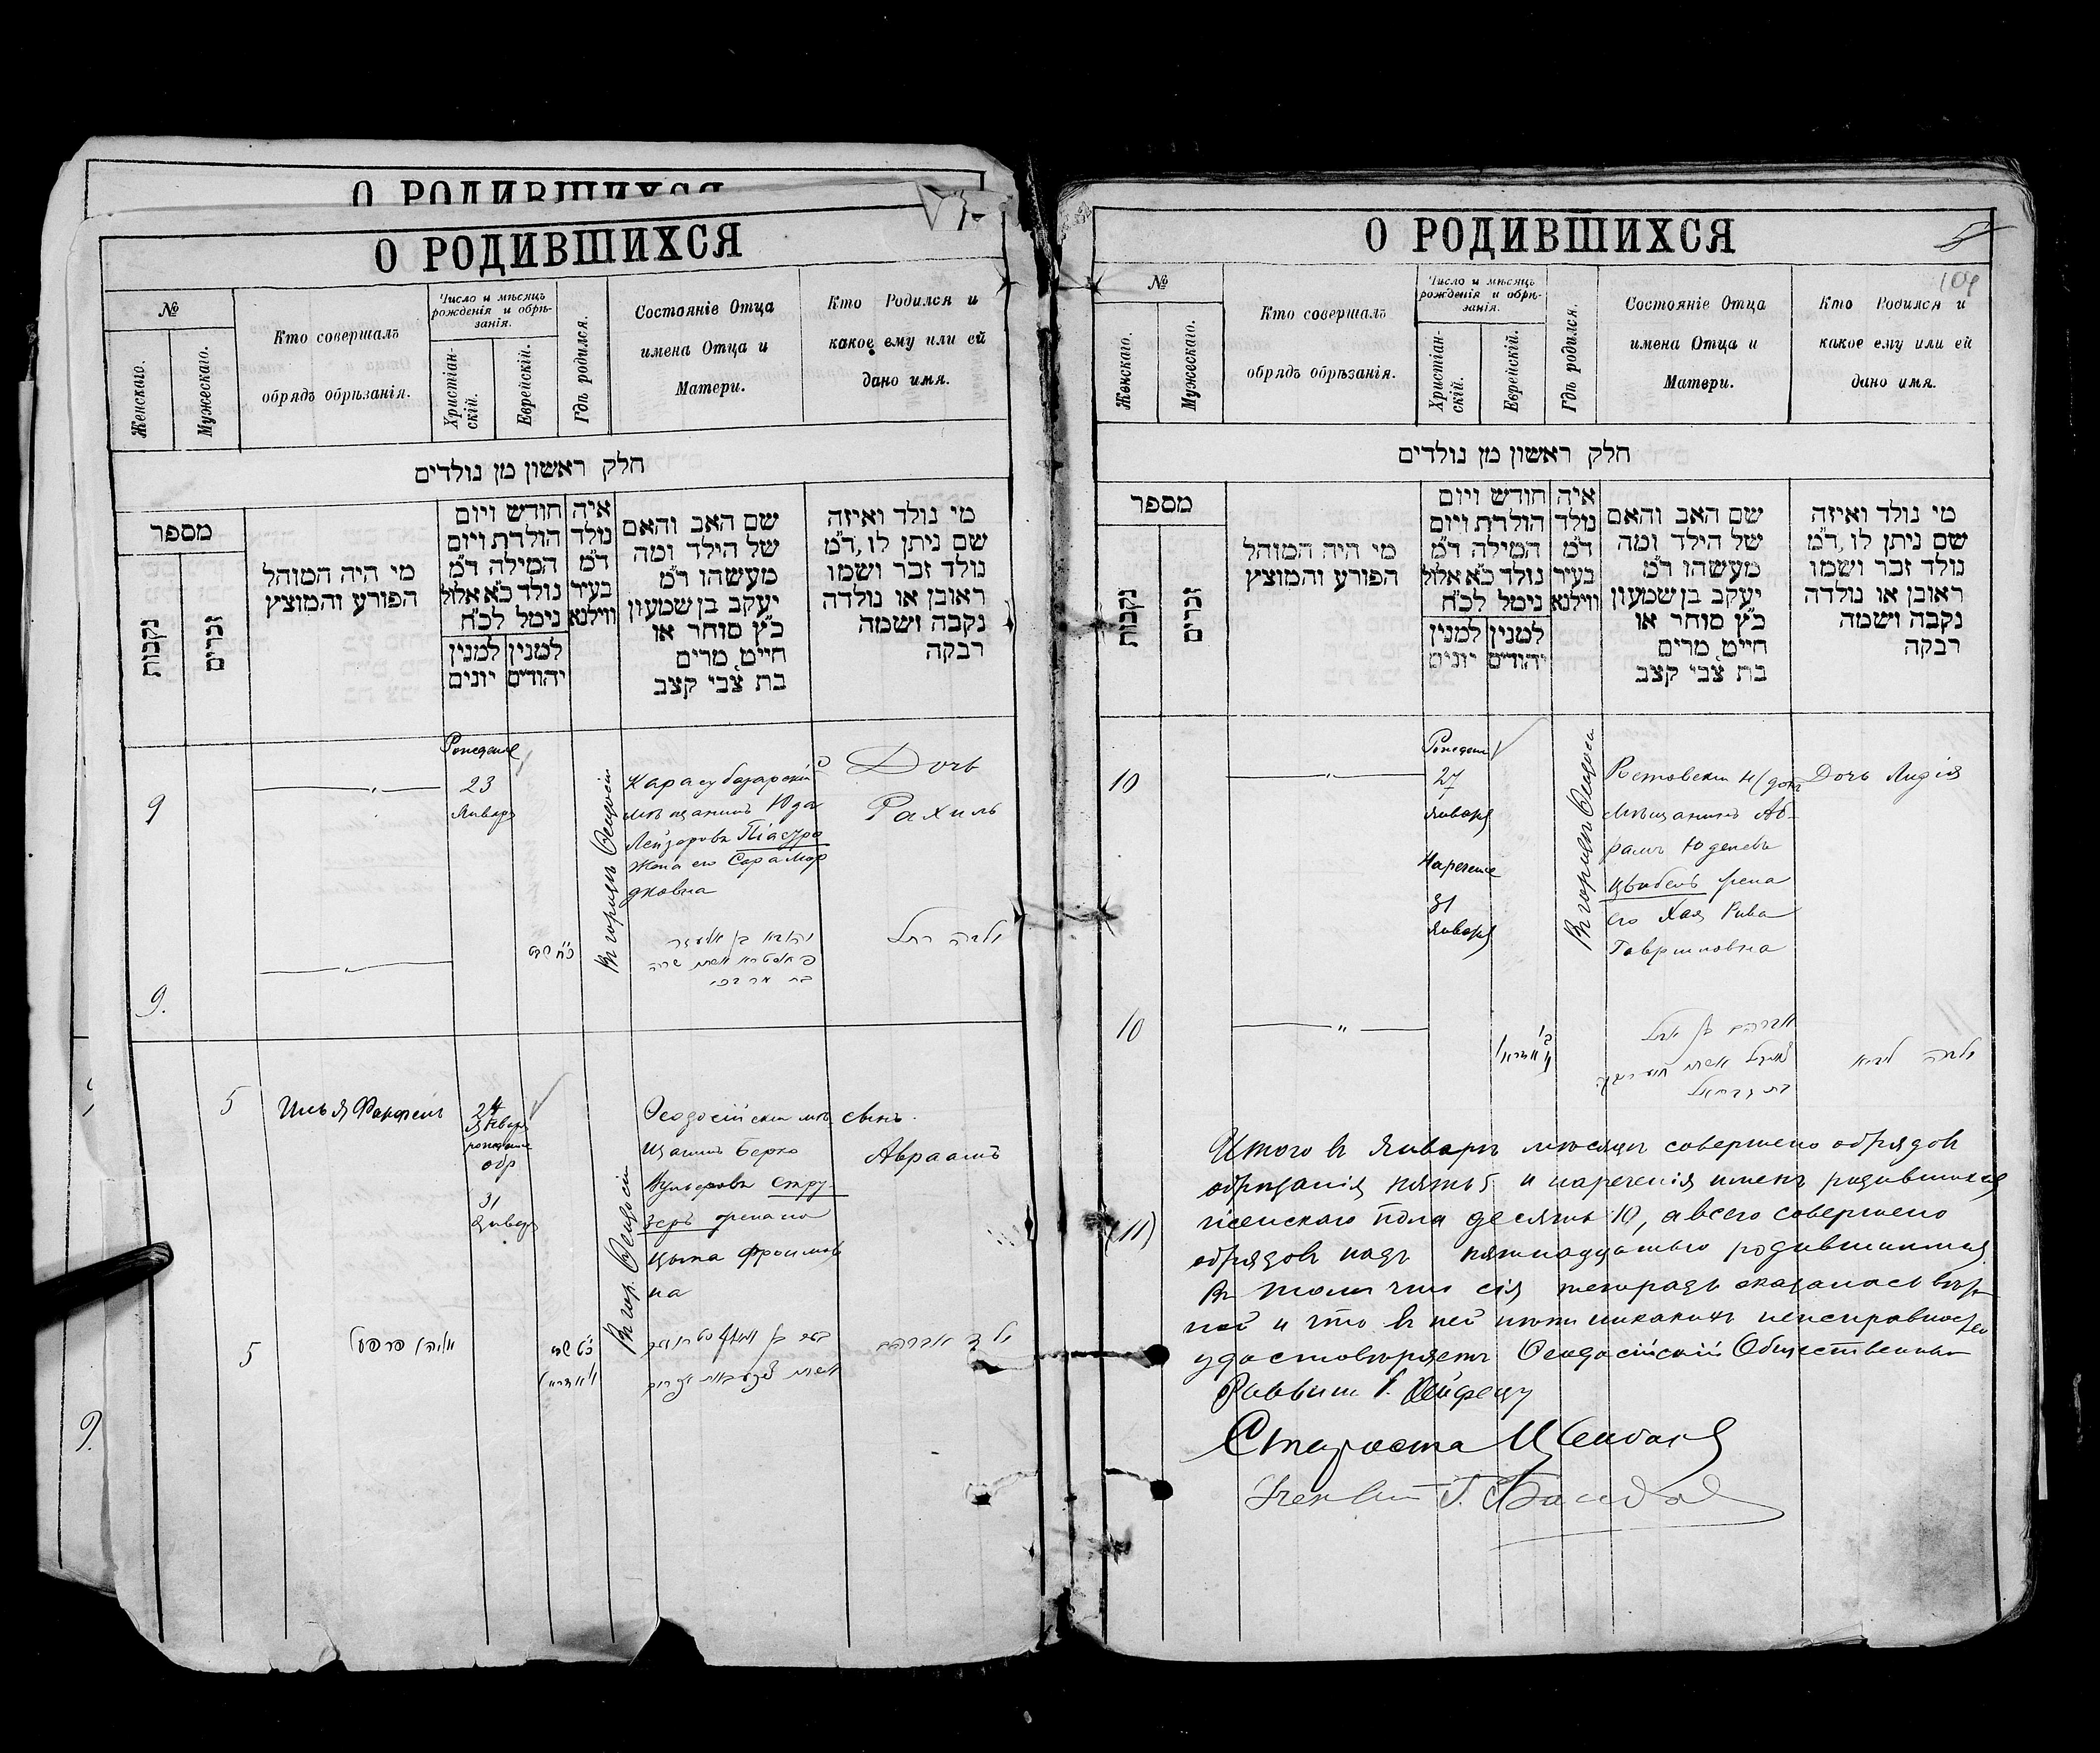 О РОДИВШИХСЯ
О РОДИВШИХСЯ
№
Женскаго.
Мужескаго.
Кто совершалъ
обрядъ обрѣзанія.
Число и мѣсяцъ
рожденія и обрѣ-
занія.
Христіан-
скій.
Еврейскій.
Гдѣ родился.
Состояніе Отца
имена Отца и
Матери.
Кто Родился и
какое ему или ей
дано имя.
חלק ראשון מן נולדים
מספר
נקבות
זכרים
מי היה המוהל
הפורע והמוצץ
חודש ויום
הולדת ויום
המילה ד״מ
נולד כ״א אלול
נימל לכ״ח
למנין יהודים
למנין יונים
איה
נולד
ד״מ
בעיר
ווילנא
שם האב והאם
של הילד ומה
מעשהו ד״מ
יעקב בן שמעון
כ״ץ סוחר או
חייט מרים
בת צבי קצב
מי נולד ואיזה
שם ניתן לו, ד״מ
נולד זכר ושמו
ראובן או נולדה
נקבה ושמה
רבקה
9
Рожденіе
23
Января
Въ городѣ Ѳеодосіи
Карасубазарскій
мѣщанинъ Юда
Лейзеровъ Піастро
Жена его Сара Мор
дковна
Дочь
Рахиль
9.
כ״ח שבט
יהודא בן אליעזר
פיאסטרא אשתו שרה
בת מרדכי
ילדה רחל
5
Илья Фарфель
24
Января
рожденіе
обр
31
Января
Въ гор. Ѳеодосіи
Ѳеодосійскій мѣ
щанинъ Берко
жена его
Цыпа Фроимов
на
сынъ
Авраамъ
5
אליהו פרפעל
כ״ט שבט
ילד אברהם
О РОДИВШИХСЯ
5
109
№
Женскаго.
Мужескаго.
Кто совершалъ
обрядъ обрѣзанія.
Число и мѣсяцъ
рожденія и обрѣ-
занія.
Христіан-
скій.
Еврейскій.
Гдѣ родился.
Состояніе Отца
имена Отца и
Матери.
Кто Родился и
какое ему или ей
дано имя.
חלק ראשון מן נולדים
מספר
נקבות
זכרים
מי היה המוהל
הפורע והמוצץ
חודש ויום
הולדת ויום
המילה ד״מ
נולד כ״א אלול
נימל לכ״ח
למנין יהודים
למנין יונים
איה
נולד
ד״מ
בעיר
ווילנא
שם האב והאם
של הילד ומה
מעשהו ד״מ
יעקב בן שמעון
כ״ץ סוחר או
חייט מרים
בת צבי קצב
מי נולד ואיזה
שם ניתן לו, ד״מ
נולד זכר ושמו
ראובן או נולדה
נקבה ושמה
רבקה
10
Рожденіе
27
Января
Нареченіе
31
Января
Въ городѣ Ѳеодосіи
Ростовскій н/дону
мѣщанинъ Аб-
рамъ Юделевъ
Цымбелъ жена
его Хая Рива
Гавриловна
Дочь Лидія
10
Итого въ Январѣ мѣсяцѣ совершено обрядовъ
обрѣзанія пять 5 и нареченія именъ родившихся
женскаго пола десять 10, а всего совершено
(11)
обрядовъ надъ пятнадцатью родившимися
въ томъ что сія тетрадь оказалась вѣр-
ной и что въ ней нѣтъ никакихъ неисправностей
удостовѣряетъ Ѳеодосійскій Общественный
Раввинъ
Староста